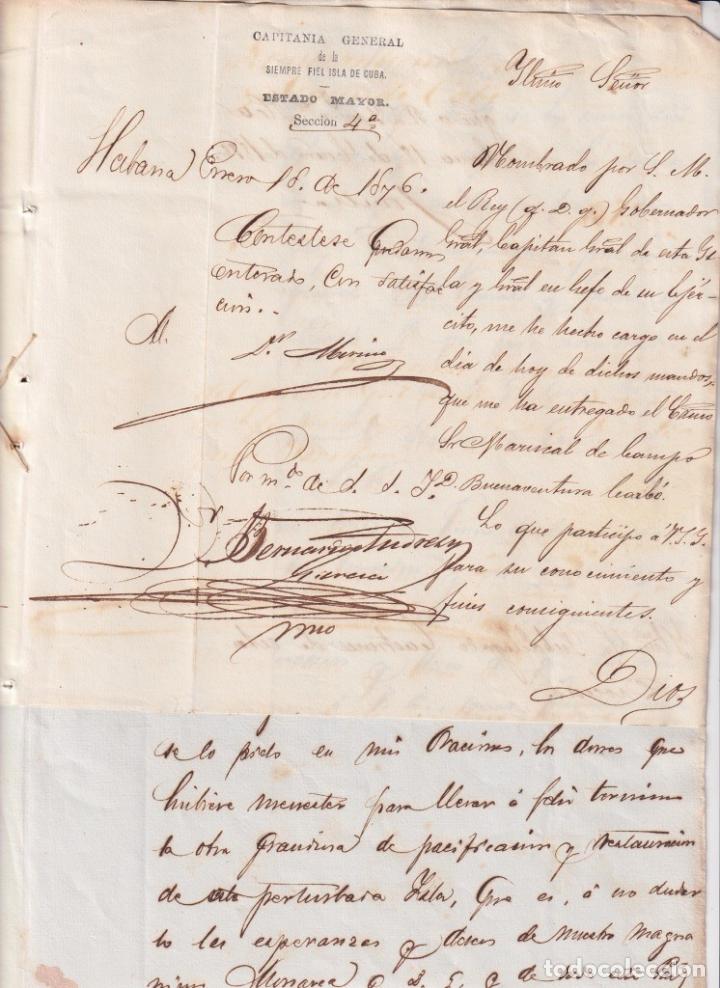 CAPITANIA GENERAL
de la
SIEMPRE FIEL ISLA DE CUBA.
ESTADO MAYOR.
Seccion 4ª
Yltmo Señor
Habana Enero 18. de 1876.
Contestese quedamos
enterado, con satisfac
cion.
Dr. Merino
Por mdo de S. S. Y.
Bernardo
Garcia
Nombrado por S. M.
el Rey (q. D. g.) Gobernador
Gral, Capitan Gral de esta Ys
la y Gral en Gefe de su Ejér-
cito, me he hecho cargo en el
dia de hoy de dichos mandos,
que me ha entregado el Exmo
Sr Mariscal de Campo
D. Buenaventura Carbó.
Lo que participo á V.S.Y.
para su conocimiento y
fines consiguientes.
Dios
se lo pido en mis Oraciones, los dones que
hubiere menester para llevar á feliz termino
la obra grandiosa de pacificacion y restauracion
de esta perturbada Ysla, que es, á no dudar
lo las esperanzas y deseos de nuestro magna
nimo Monarca
todocoleccion
todocoleccion.net